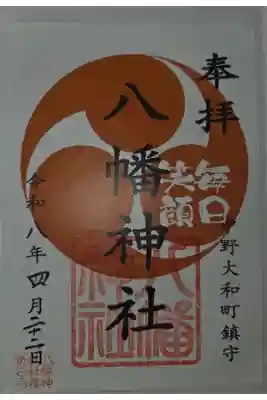 奉拝
毎日
笑顔
中野大和町鎮守
八幡神社
八幡
神社
令和八年四月二十二日